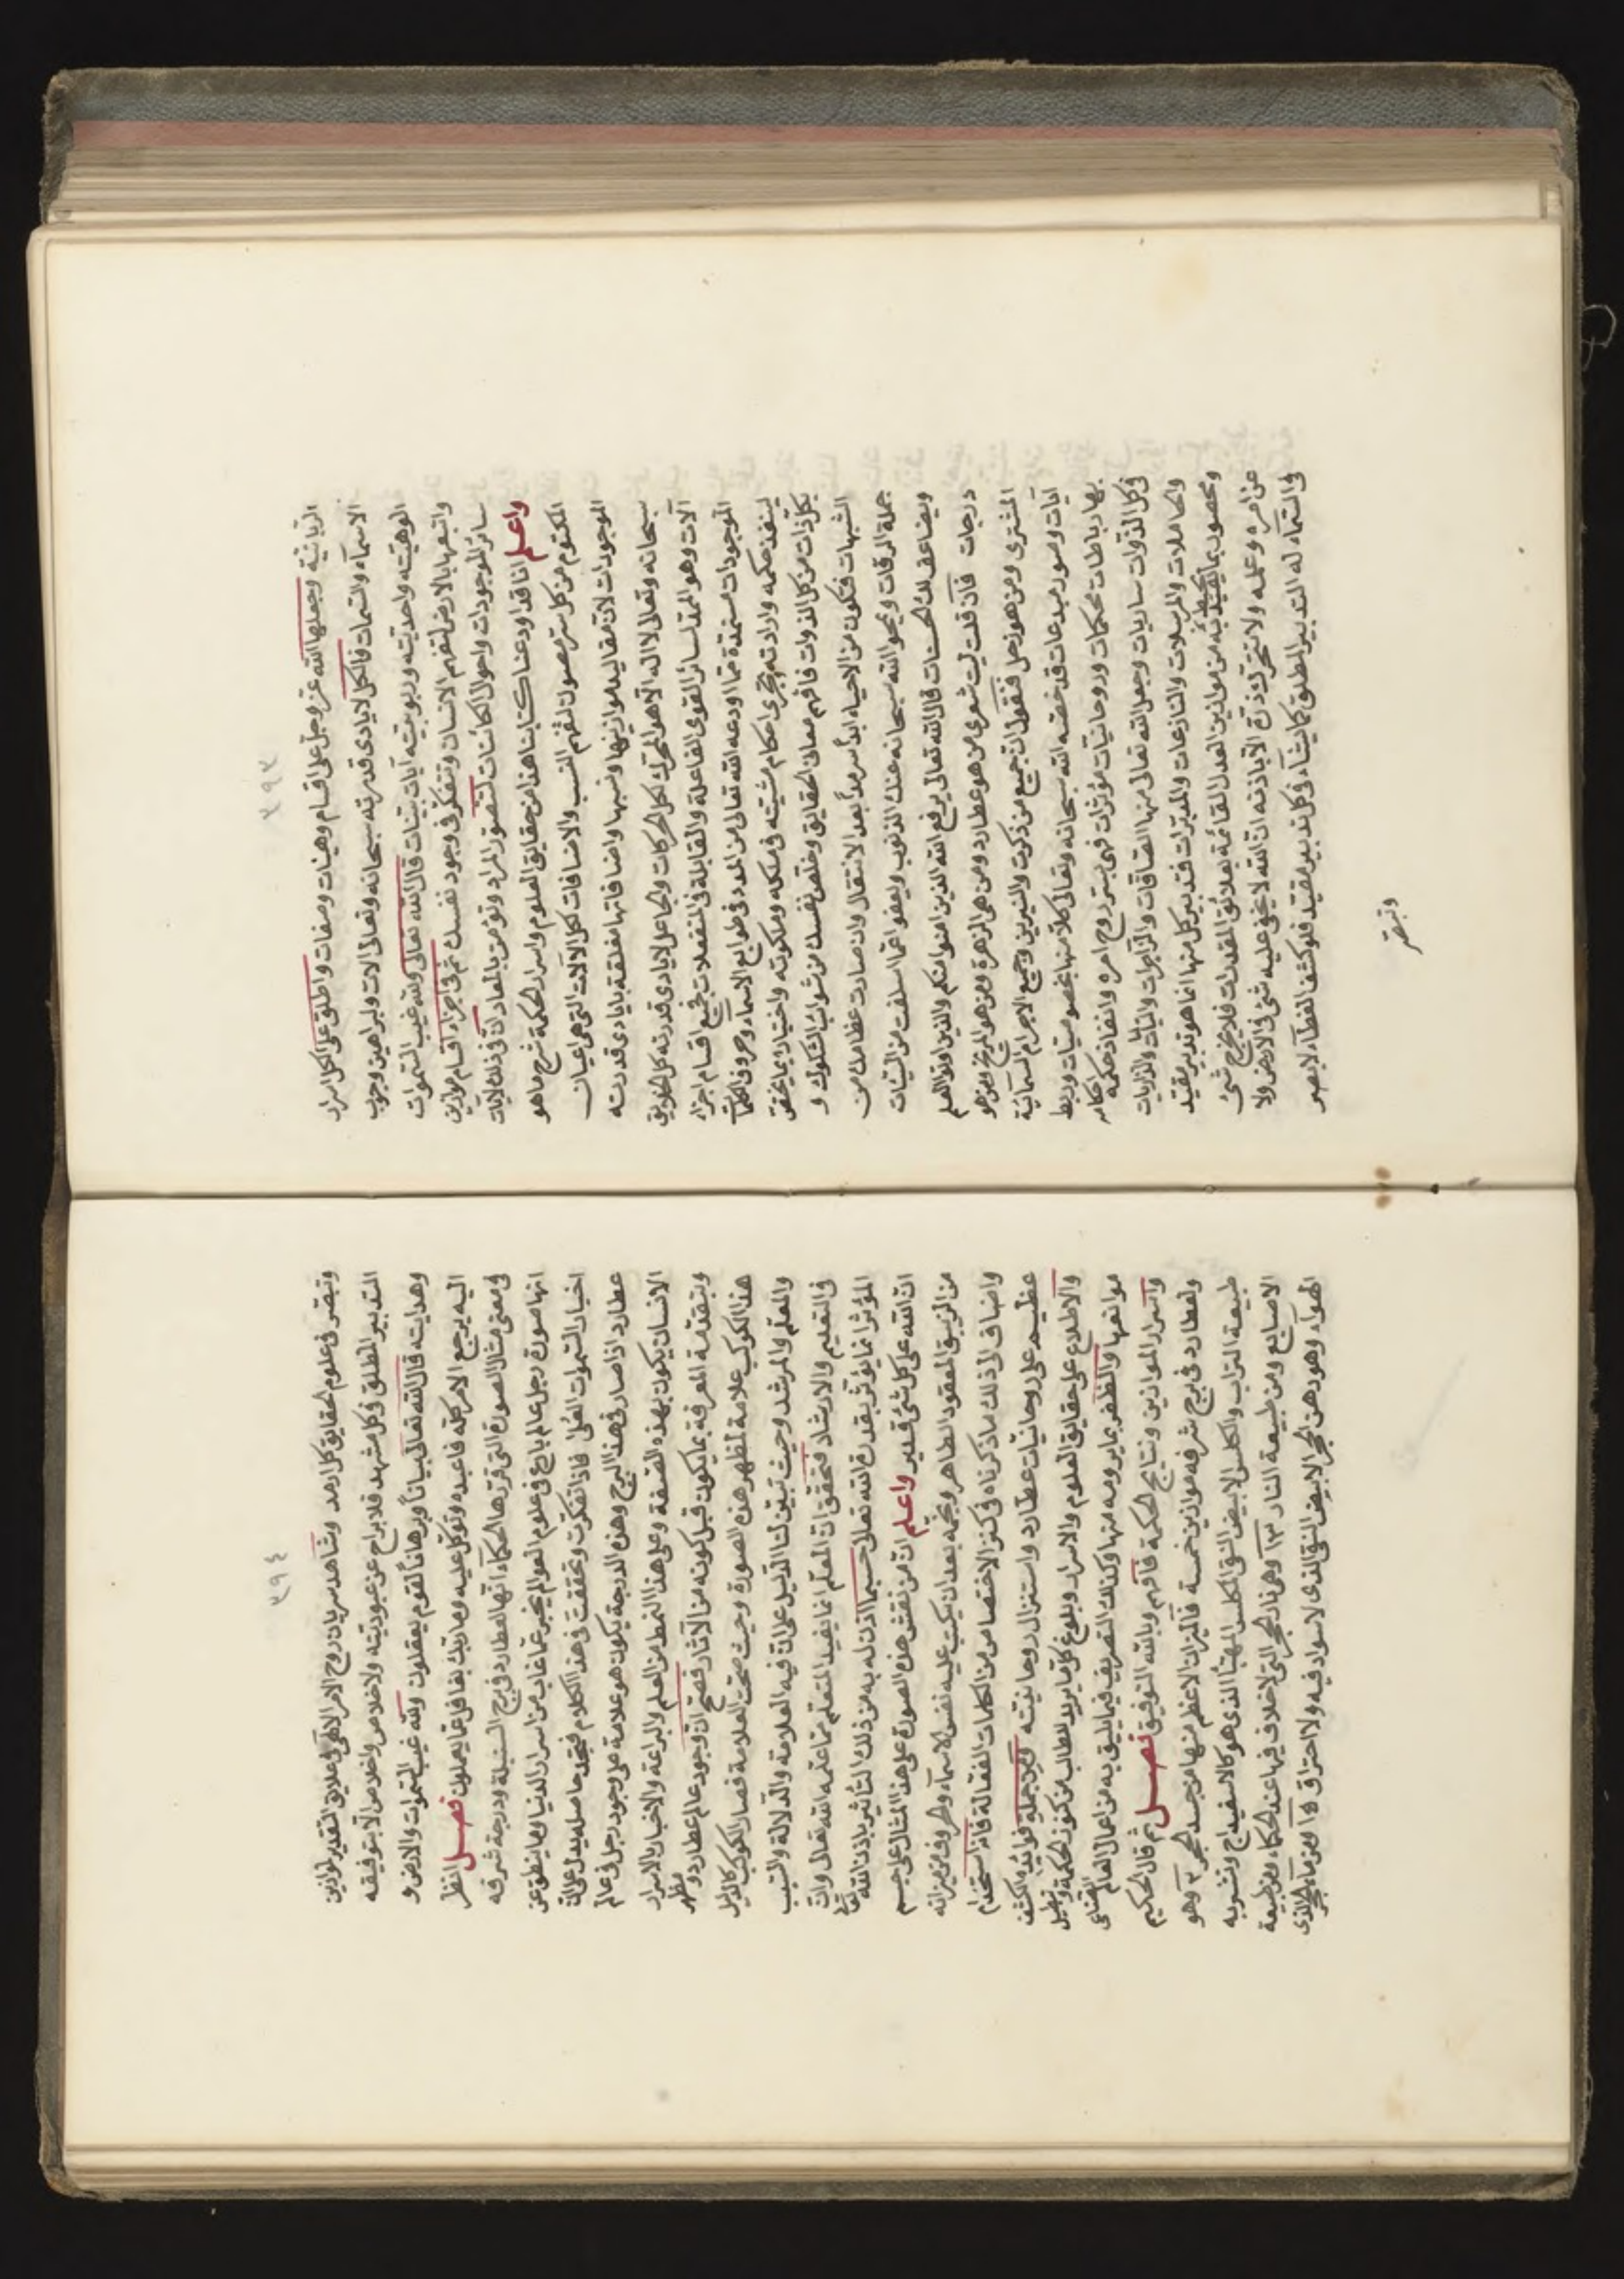 ٣٩٣
الربانية وجعلها الله عز وجل على اقسام وهيئات وصفات واطلق على الكل اسرار
الاسماء والسمات فالكل لايادى قدرته سبحانه وتعالى آلات ولبراهين وجوب
الوهيته واحديته وربوبيته آيات بينات قال الله تعالى ولله غيب السموات
واتبعها بالارض لتفهم الانسان وتتفكر فى وجود نفسك ثم فى اجزاء اقسام موازين
سائر الموجودات واحوال الكائنات لتتصور المراد وتؤمن بالمعاد ان فى ذلك لايات
واعلم اننا قد اودعنا كتابنا هذا من حقايق العلوم واسرار الحكمة شرح ما هو
المكتوم من كل سر مصون لتفهم النسب والاضافات لكل الالات التى هى اعيان
الموجودات لان مقاليد موازينها ونسبها واضافاتها معلقة بايادى قدرته
سبحانه وتعالى لا اله الا هو المحرك لكل الحركات والجاعل لايادى قدرته كل الخلايق
آلات وهو الممد لسائر القوى الفاعلة والقابلة فى المنفعلات بجميع اقسام اجزاء
الموجودات مستمدة مما اودعه الله تعالى من المدد فى طوابع الاسماء وحروف الكلمات
لينفذ حكمه وارادته وتجرى احكام مشيته فى ملكه وملكوته واختياره بما يختص
بكل ذات من كل الذوات فافهم معانى الحقايق وخلص نفسك من شوائب الشكوك و
الشبهات فتكون من الاحياء ابدا سرمدا بعد الانتقال وان صارت عظامك من
جملة الرفات ويمحو الله سبحانه عنك الذنوب ويعفو عما اسلفت من السيئات
ويضاعف لك الحسنات قال الله تعالى يرفع الله الذين امنوا منكم والذين اوتوا العلم
درجات فان قلت ليت شعرى من هو عطارد ومن هى الزهرة ومن هو المريخ ومن هو
المشترى ومن هو زحل فنقول ان جميع من ذكرت والنيرين وجميع الاجرام السمائية
آيات وصور مبدعات قد خصه الله سبحانه وتعالى كلا منها بخصوصيات وربط
بها رباطات محكمات وروحانيات مؤثرات فهى بسر روح امره وانفاذ حكمه احكامه
فى كل الذوات ساريات وجعل الله تعالى منها الصافات والزاجرات والتاليات والذاريات
والحاملات والمرسلات والنازعات والمدبرات فتدبير كل منها انما هو تدبير بقيد
ومحصور بما يحيط به من موازين العدل القائمة بعلائق المقدرات فلا يخرج شئ
عن امره وعلمه ولا تتحرك ذرة الا باذنه ان الله لا يخفى عليه شئ فى الارض ولا
فى السماء له التدبير المطلق كما يشاء فى كل تدبير مقيد فلو كشف الغطاء لابصر
وتبصر
٣٩٤
وتبصر فى علوم الحقايق كل ارمد وشاهد سريان روح الامر الالهى فى علايق التقدير لموازين
التدبير المطلق فى كل مشهد فلا براح عن عبوديته ولا خلاص واخلاص الا بتوفيقه
وهدايته قال الله تعالى بيانا وبرهانا لقوم يعقلون ولله غيب السموات والارض و
اليه يرجع الامر كله فاعبده وتوكل عليه وما ربك بغافل عما يعملون فصل انظر
فى معنى مثال الصورة التى قررها الحكماء انها لعطارد فى برج السنبلة ودرجة شرفه
انها صورة رجل عالم بارع فى علوم العوالم يخبر عما غاب من اسرار الدنيا وما ينطق عن
اخبار السموات العلى فاذا تفكرت وتحققت فى هذا الكلام فتجد حاصله يدل على ان
عطارد اذا صار فى هذا البرج وهذه الدرجة يكون هو علامة على وجود رجل فى عالم
الانسان يكون بهذه الصفة وعلى هذا النمط من العلم والبراعة والاخبار بالاسرار
وبتقدمة المعرفة بما يكون قبل كونه من الآثار فصح ان وجود عالم عطارد و مظهر
هذا الكوكب علامة لمظهر هذه الصورة وحيث صحت العلامة فصار الكوكب كالدليل
والمعلم والمرشد وحيث تبين لنا الدليل على ان فيه العلامة والدلالة والسبب
فى التعليم والارشاد فتحقق ان المعلم انما يفيد المتعلم مما علمه الله تعالى وان
المؤثر انما يؤثر بقدرة الله تعالى حسبما اذن له به من ذلك التأثير باذن الله تعالى
ان الله على كل شئ قدير واعلم ان من نقش هذه الصورة على هذا المثال على جسم
من الزيبق المعقود الطاهر ونجمه بعد ان يكتب عليه نفس الاسماء والحروف من ميزانه
واضاف الى ذلك ما ذكرناه فى كنز الاختصاص من الكلمات الفعالة فاذا استخدام
عظيم على روحانيات عطارد واستنزال روحانيته ومن جملة فوائده الكشف
والاطلاع على حقايق العلوم والاسرار وبلوغ كل ما يريد الطالب من كنوز الحكمة ونيل
موانعها والظفر بما يرومه منها وكذلك التصريف فيما يليق به من اعمال العالم الصناعى
واسرار الموازين ونتايج الحكمة فافهم وبالله التوفيق فصل ثم قال الحكيم
ولعطارد فى برج شرفه موازين خمسة فالميزان الاعظم منها من جسد الحجر ٢ وهو
طبيعة التراب والكلس الابيض النقى المكلس المهيأ الذى هو كالاسفيداج وتشويه
الاصابع ومن طبيعة النار ١٣ وهى نار الحجر التى لا خلاف فيها عند الحكماء ومن طبيعة
الهواء وهو دهن الحجر الابيض النقى الذى لا سواد فيه ولا احتراق ١٥ ومن ماء الحجر الذى